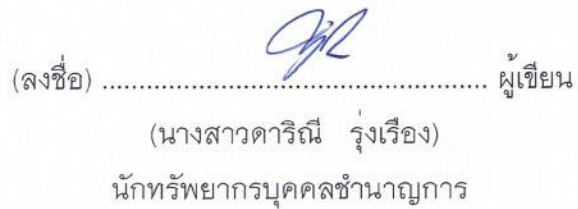 (ลงชื่อ) ................................................ ผู้เขียน
(นางสาวดาริณี รุ่งเรือง)
นักทรัพยากรบุคคลชำนาญการ